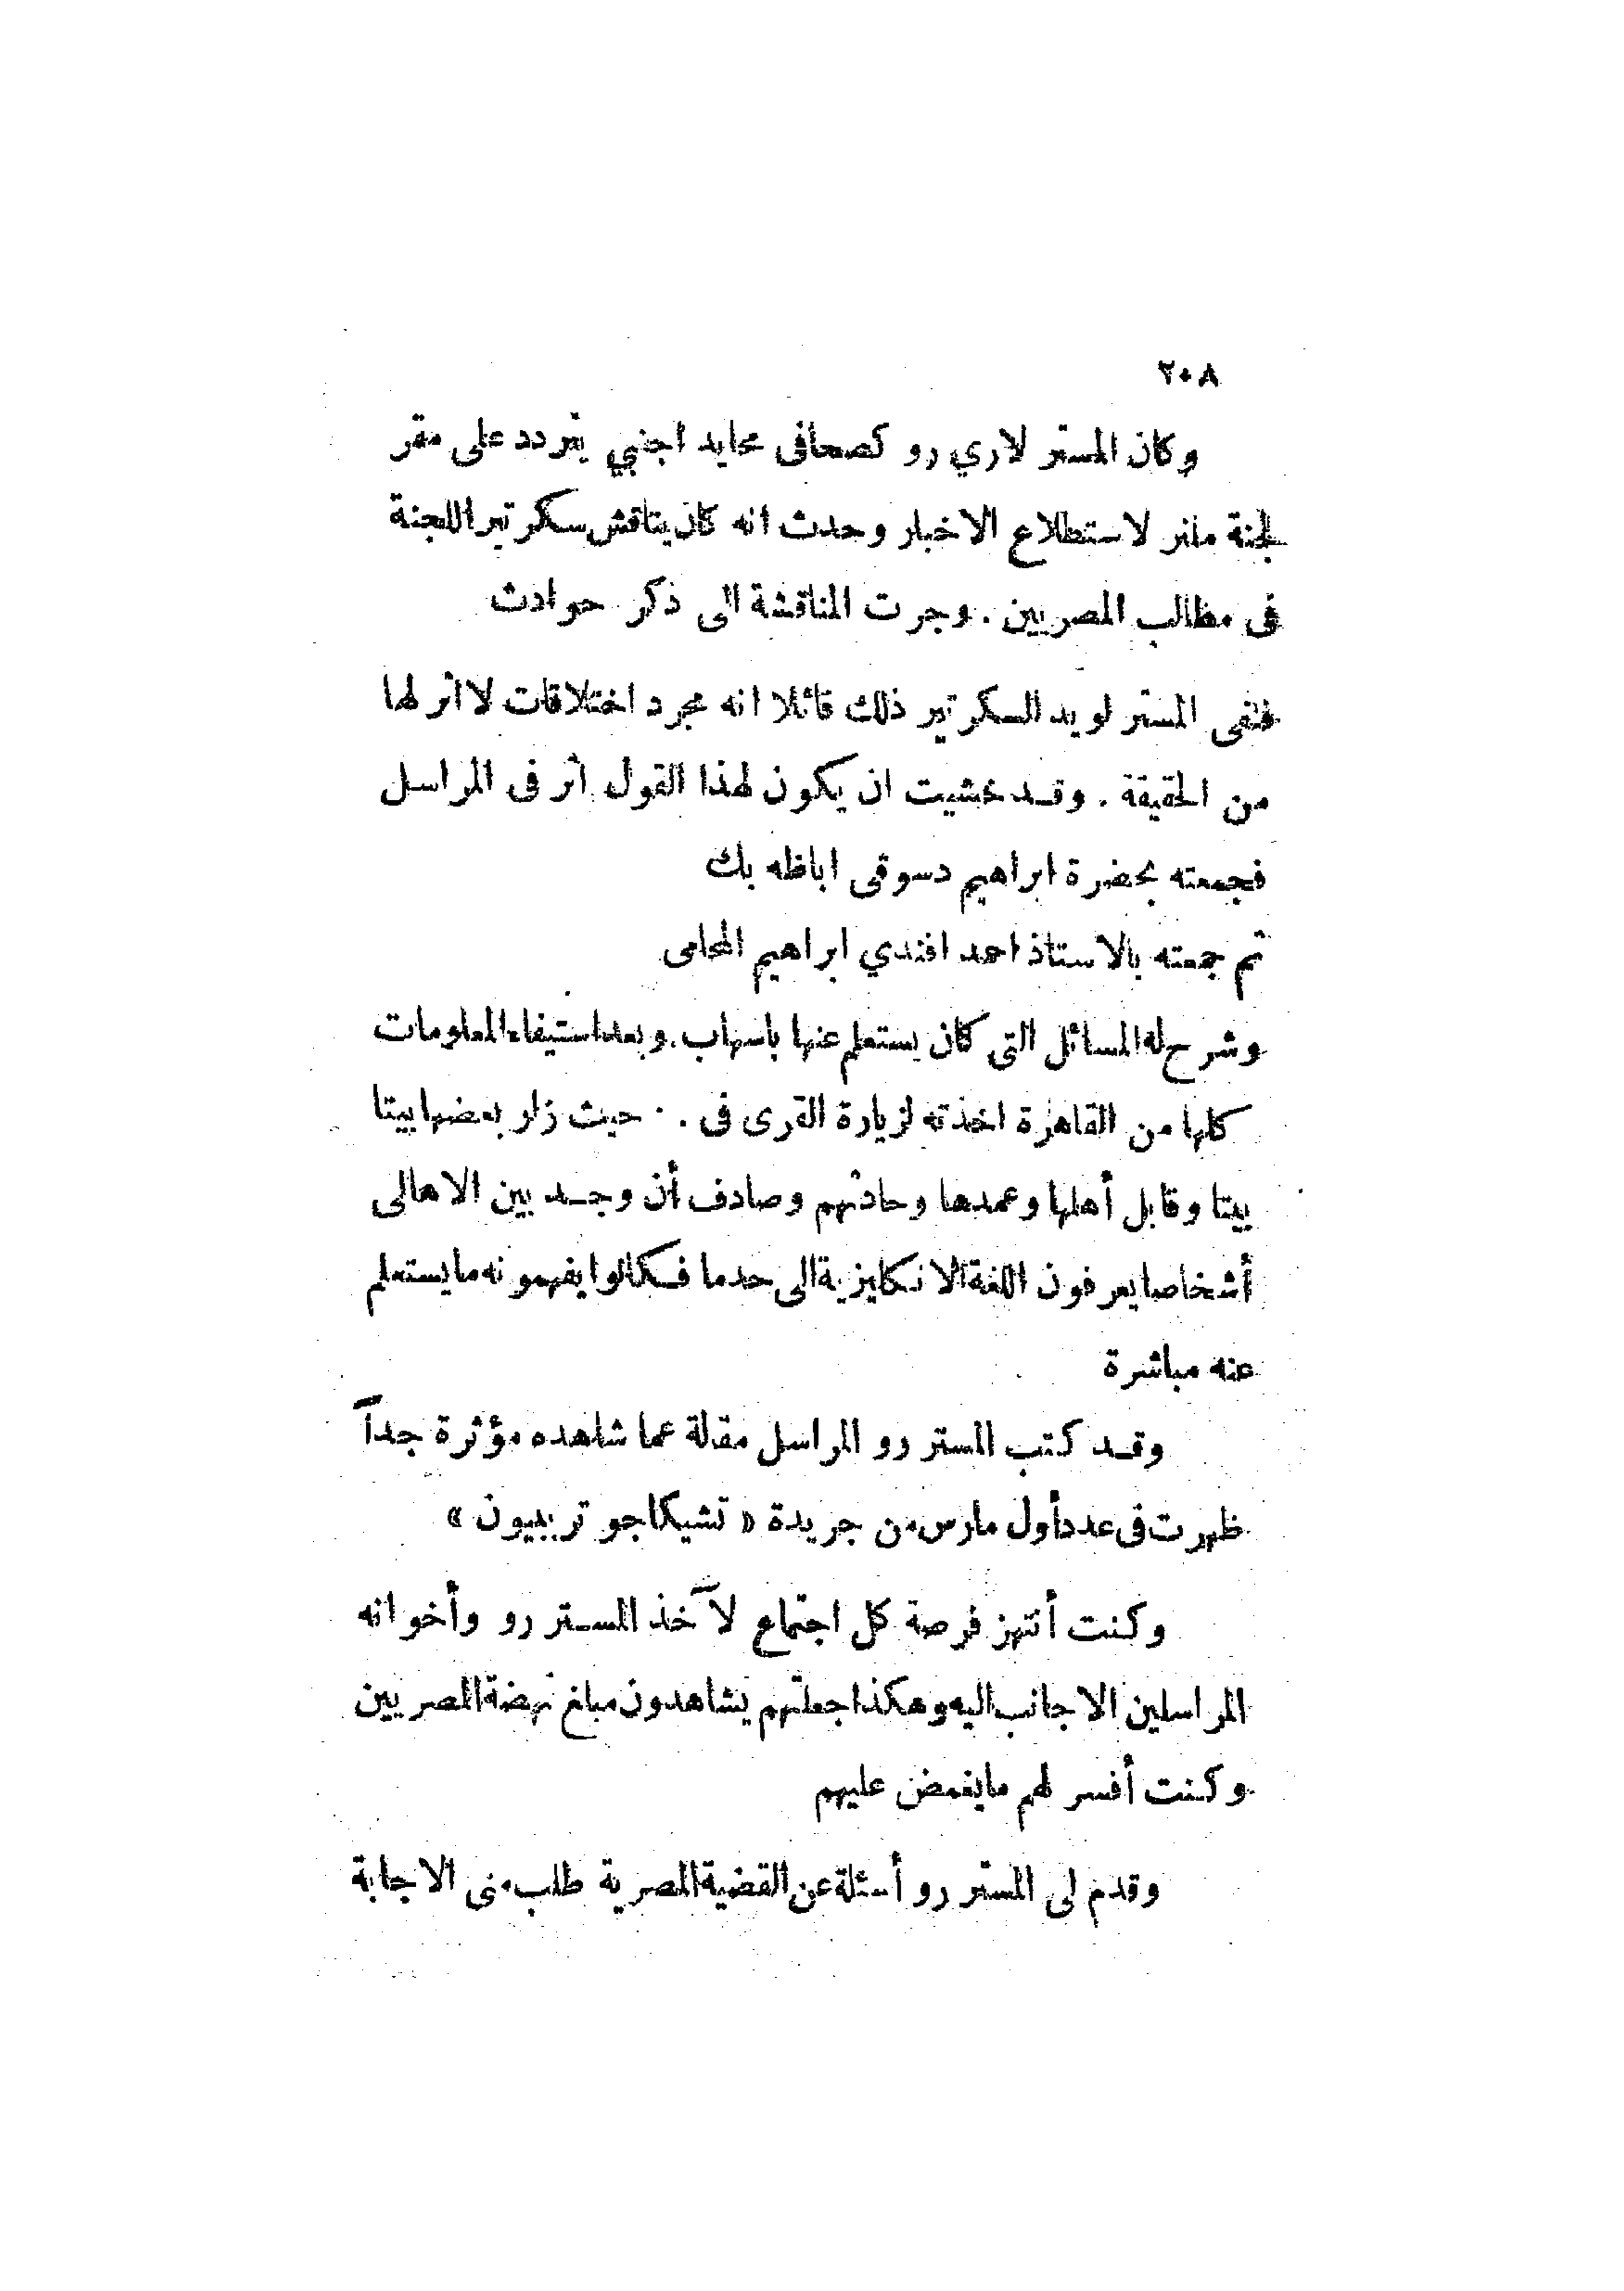 ٢٠٨
وكان المستر لاري رو كصحافى محايد اجنبي يتردد على مقر
لجنة ملنر لاستطلاع الاخبار وحدث انه كان يناقش سكرتير اللجنة
فى مطالب المصريين . وجرت المناقشة الى ذكر حوادث
فنفى المستر لويد السكرتير ذلك قائلا انه مجرد اختلاقات لا اثر لها
من الحقيقة . وقد خشيت ان يكون لهذا القول اثر فى المراسل
فجمعته بحضرة ابراهيم دسوقى اباظه بك
ثم جمعته بالاستاذ احمد افندي ابراهيم المحامى
وشرح له المسائل التى كان يستعلم عنها باسهاب . وبعد استيفاء المعلومات
كلها من القاهرة اخذته لزيارة القرى فى . . حيث زار بعضها بيتا
بيتا وقابل أهلها وعمدها وحادثهم وصادف أن وجد بين الاهالى
أشخاصا يعرفون اللغة الانكليزية الى حد ما فكانوا يفهمونه ما يستعلم
عنه مباشرة
وقد كتب المستر رو المراسل مقالة عما شاهده مؤثرة جداً
ظهرت فى عدد أول مارس من جريدة « تشيكاجو تريبيون »
وكنت أنتهز فرصة كل اجتماع لآخذ المستر رو وأخوانه
المراسلين الاجانب اليه وهكذا جعلتهم يشاهدون مبلغ نهضة المصريين
وكنت أفسر لهم ما يغمض عليهم
وقدم لى المستر رو أسئلة عن القضية المصرية طلب منى الاجابة